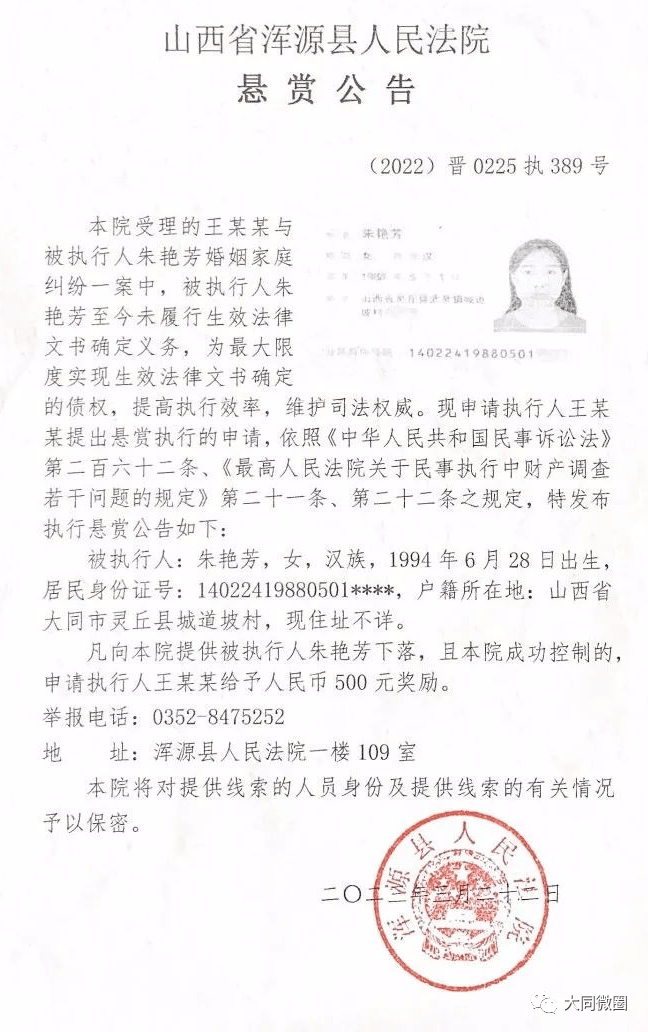 山西省浑源县人民法院
悬赏公告
（2022）晋0225执389号
本院受理的王某某与
被执行人朱艳芳婚姻家庭
纠纷一案中，被执行人朱
艳芳至今未履行生效法律
文书确定义务，为最大限
度实现生效法律文书确定
朱艳芳
女
14022419880501
的债权，提高执行效率，维护司法权威。现申请执行人王某
某提出悬赏执行的申请，依照《中华人民共和国民事诉讼法》
第二百六十二条、《最高人民法院关于民事执行中财产调查
若干问题的规定》第二十一条、第二十二条之规定，特发布
执行悬赏公告如下：
被执行人：朱艳芳，女，汉族，1994年6月28日出生，
居民身份证号：14022419880501****，户籍所在地：山西省
大同市灵丘县城道坡村，现住址不详。
凡向本院提供被执行人朱艳芳下落，且本院成功控制的，
申请执行人王某某给予人民币500元奖励。
举报电话：0352-8475252
地 址：浑源县人民法院一楼109室
本院将对提供线索的人员身份及提供线索的有关情况
予以保密。
二〇二二年三月二十二日
浑源县人民法院
大同微圈